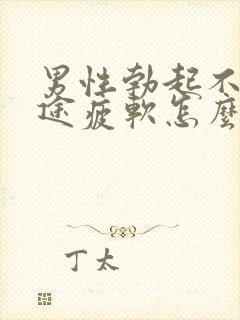 男性勃起不
途疲軟怎麼
丁太